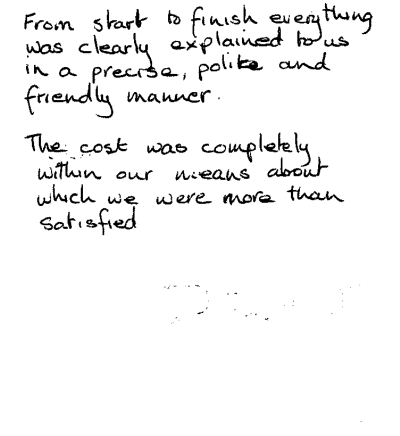 From start to finish everything
was clearly explained to us
in a precise, polite and
friendly manner.
The cost was completely
within our means about
which we were more than
satisfied